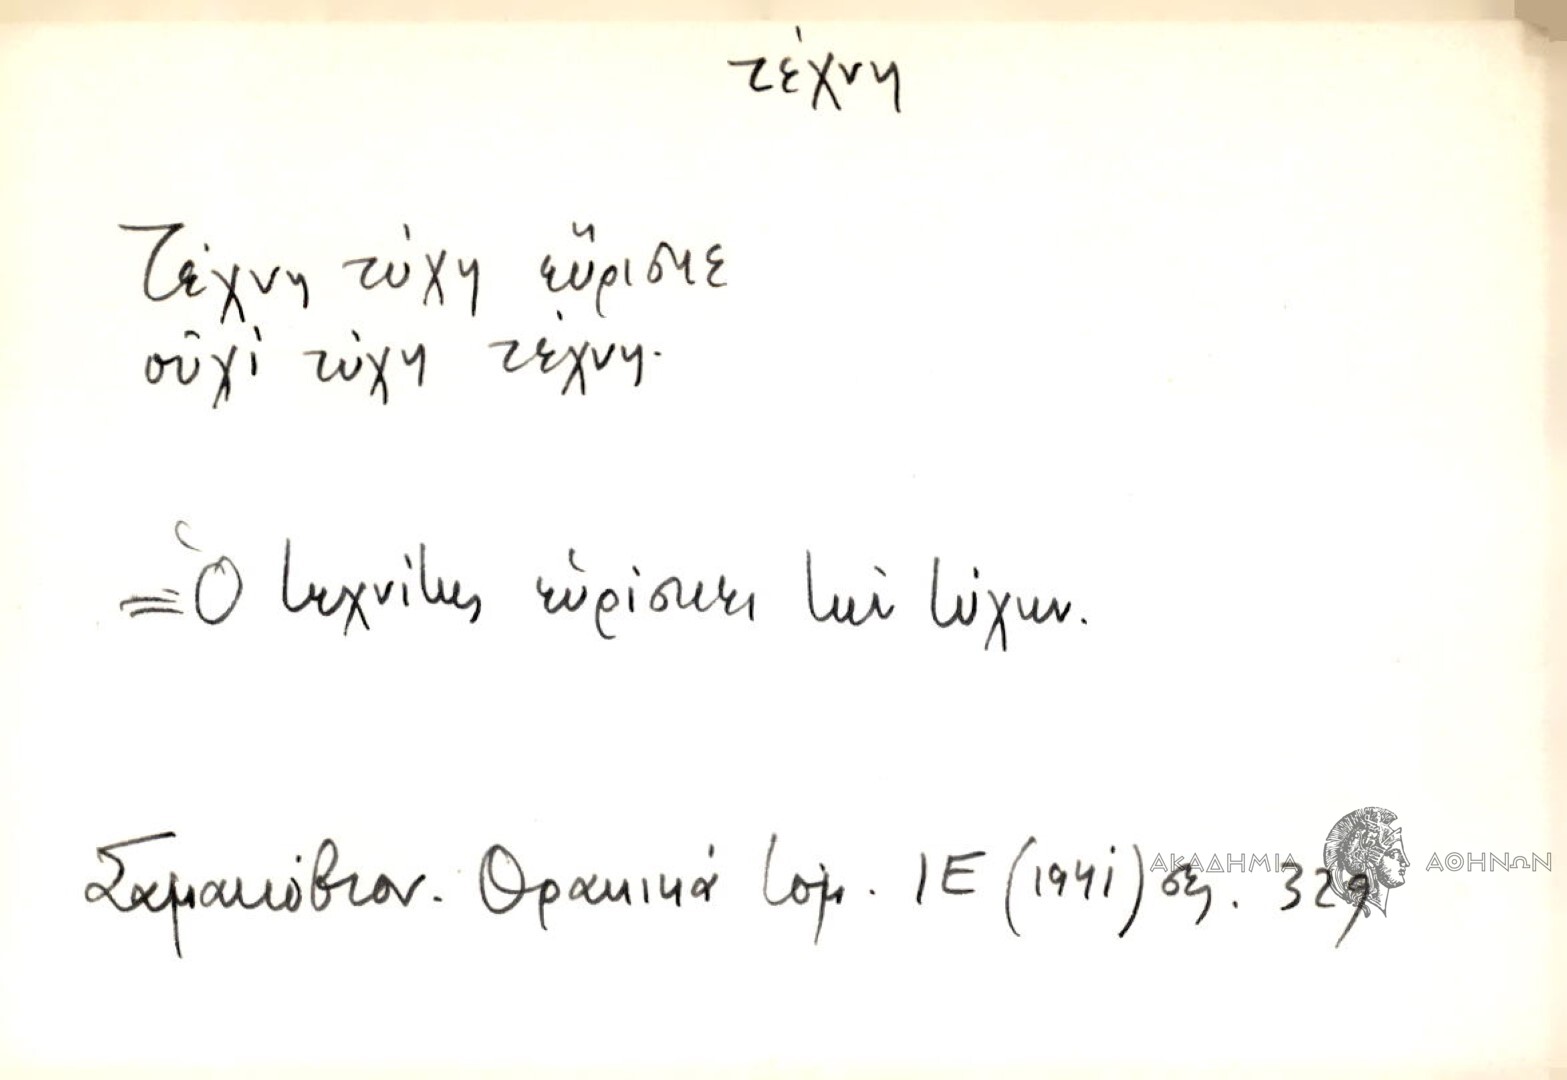 τέχνη
Τέχνη τύχη εὕρισκε
οὐχὶ τύχη τέχνη.
=Ὁ τεχνίτης εὑρίσκει τὴν τύχην.
Σαμακόβιον. Θρακικά τόμ. ΙΕ (1941) σελ. 329
ΑΚΑΔΗΜΙΑ ΑΘΗΝΩΝ